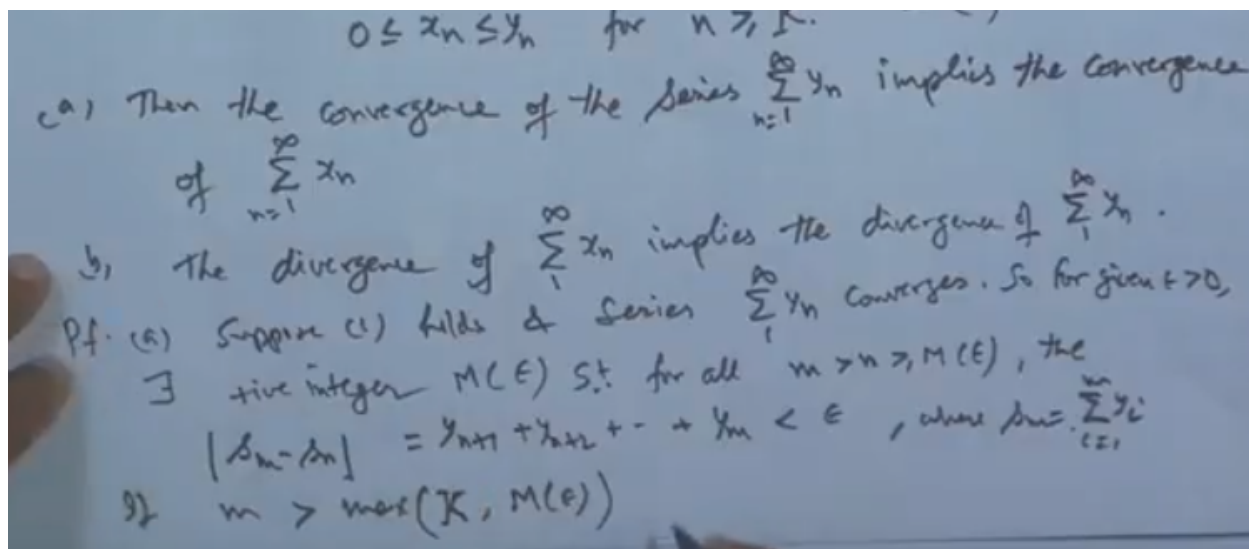 0 ≤ xn ≤ yn for n ≥ K.
(a) Then the convergence of the series ∑_{n=1}^{∞} yn implies the convergence
of ∑_{n=1}^{∞} xn
b) The divergence of ∑_{1}^{∞} xn implies the divergence of ∑_{1}^{∞} yn.
Pf. (a) Suppose (1) holds & series ∑_{1}^{∞} yn converges. So for given ε > 0,
∃ +ive integer M(ε) s.t for all m > n ≥ M(ε), the
|sm - sn| = yn+1 + yn+2 + - - + ym < ε, where sm = ∑_{i=1}^{m} yi
If m > max(K, M(ε))